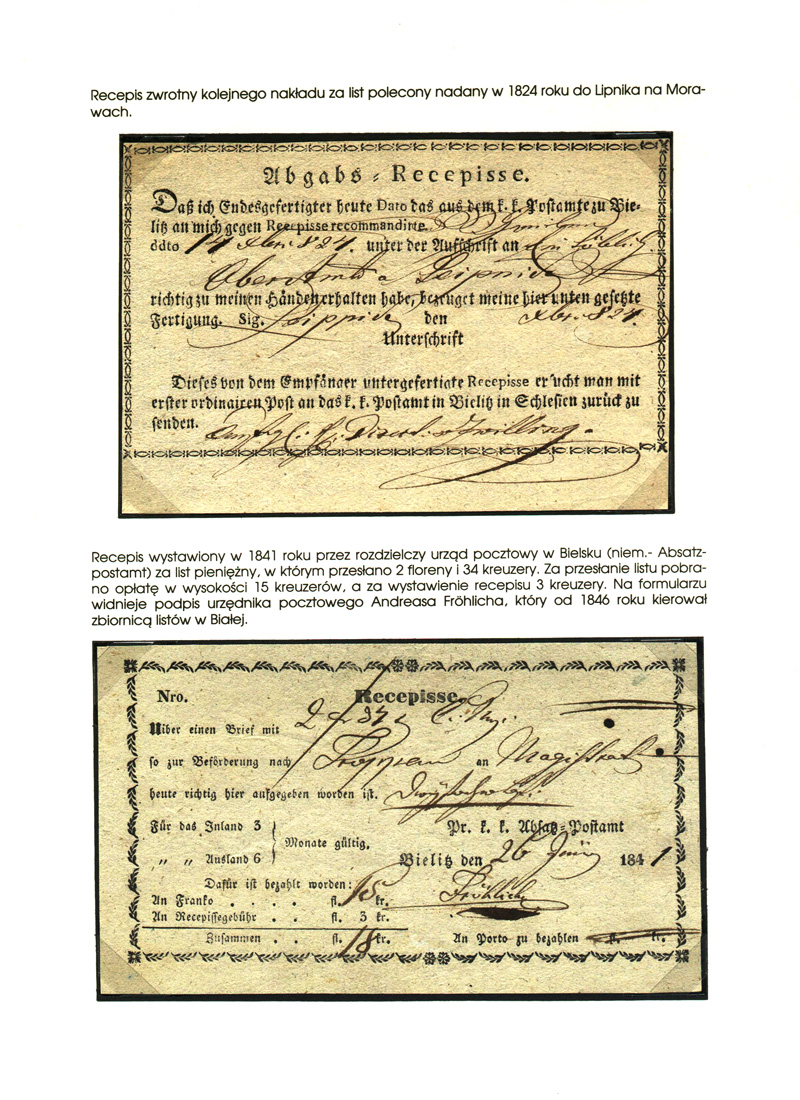 Recepis zwrotny kolejnego nakładu za list polecony nadany w 1824 roku do Lipnika na Mora-
wach.
Abgabs = Recepisse.
Daß ich Endesgefertigter heute Dato das aus dem k. k. Postamte zu Bie-
litz an mich gegen Recepisse recommandirte
ddto 14 Xbr. 824. unter der Aufschrift an
Oberamt a Leipnick
richtig zu meinen Händen erhalten habe, bezeuget meine hier unten gesetzte
Fertigung. Sig. Leipnick den Xbr. 824.
Unterschrift
Dieses von dem Empfänger untergefertigte Recepisse ersucht man mit
erster ordinairen Post an das k. k. Postamt in Bielitz in Schlesien zurück zu
senden.
Recepis wystawiony w 1841 roku przez rozdzielczy urząd pocztowy w Bielsku (niem.- Absatz-
postamt) za list pieniężny, w którym przesłano 2 floreny i 34 kreuzery. Za przesłanie listu pobra-
no opłatę w wysokości 15 kreuzerów, a za wystawienie recepisu 3 kreuzery. Na formularzu
widnieje podpis urzędnika pocztowego Andreasa Fröhlicha, który od 1846 roku kierował
zbiornicą listów w Białej.
Nro. Recepisse.
Uiber einen Brief mit 2 f 34 x
so zur Beförderung nach Troppau an Magistrat
heute richtig hier aufgegeben worden ist.
Für das Inland 3
Monate gültig.
„ „ Ausland 6
Pr. k. k. Absatz=Postamt
Bielitz den 26 Juny 1841
Dafür ist bezahlt worden:
An Franko . . . . fl. 15 kr.
Fröhlich
An Recepissegebühr . . fl. 3 kr.
Zusammen . . fl. 18 kr.
An Porto zu bezahlen fl. kr.